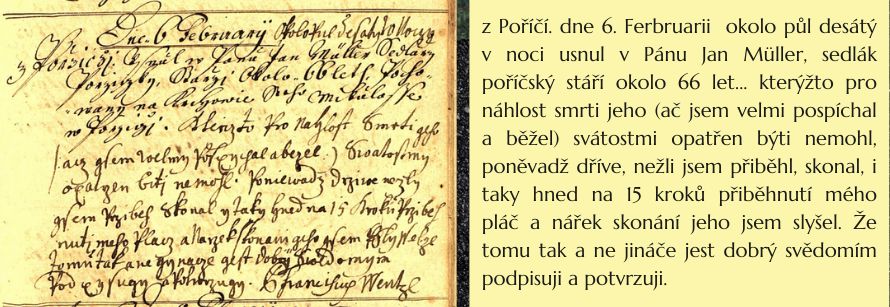 Dne. 6 February okolo pul desaty w Noczy
z Porziczi. Usnul w Panu Jan Müller Sedlak
Porziczky, Starzi okolo 66 leth. Pocho-
wany na Mikulasse
w Porziczi. Kterizto pro nahlost Smrti geho
/: acz gsem welmy pospychal a bezel :/ Swatostmy
opatrzen biti nemohl. Poniewadz drziwe nezly
gsem Przibeh Skonal y taky hned na 15 Kroku Przibeh
nuti meho placz a narzek skonani geho gsem slyssel ze
tomu tak a ne gynacze gest dobry Swiedomym
Podpysugy a Potwrzugy. Franciscus Wentzl
z Poříčí. dne 6. Ferbruarii okolo půl desátý
v noci usnul v Pánu Jan Müller, sedlák
poříčský stáří okolo 66 let... kterýžto pro
náhlost smrti jeho (ač jsem velmi pospíchal
a běžel) svátostmi opatřen býti nemohl,
poněvadž dříve, nežli jsem přiběhl, skonal, i
taky hned na 15 kroků přiběhnutí mého
pláč a nářek skonání jeho jsem slyšel. Že
tomu tak a ne jináče jest dobrý svědomím
podpisuji a potvrzuji.